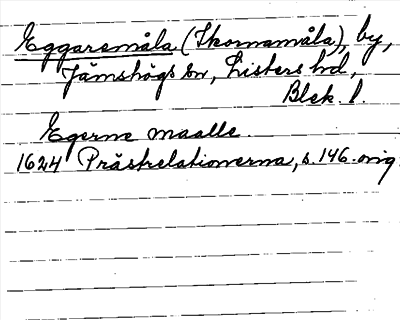 Eggaremåla (Skomamåla), by,
Jämshögs sn, Listers hd,
Blek. l.
Egerne maalle.
1624 Prästrelationerna, s. 146. orig.